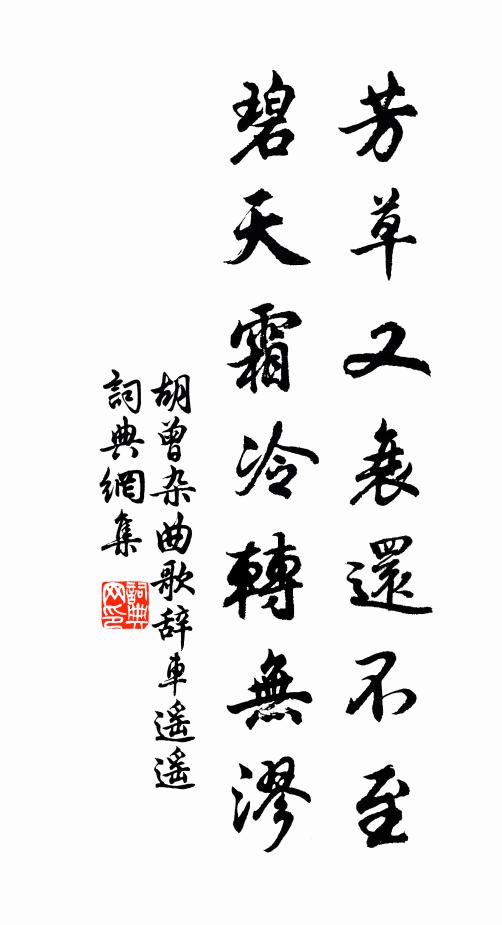 芳草又衰還不至
碧天霜冷轉無漻
胡曾杂曲歌辞車遥遥
詞典網集
詞典
网印